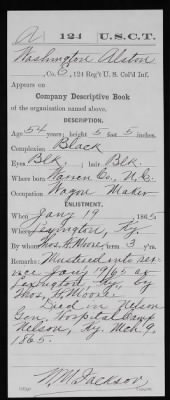 A 124 U.S.C.T.
Washington Alston
, Co. C, 124 Reg't U. S. Col'd Inf.
Appears on
Company Descriptive Book
of the organization named above.
DESCRIPTION.
Age 54 years; height 5 feet 5 inches.
Complexion Black
Eyes Blk.; hair Blk.
Where born Warren Co., N.C.
Occupation Wagon Maker
ENLISTMENT.
When Jany 19, 1865.
Where Lexington, Ky.
By whom Thos. H. Moore; term 3 y'rs.
Remarks: Mustered into ser-
vice Jany 19/65 at
Lexington, Ky., by
Thos. H. Moore.
Died in Nelson
Gen. Hospital Camp
Nelson, Ky. Mch 9,
1865.
W.M. Jackson